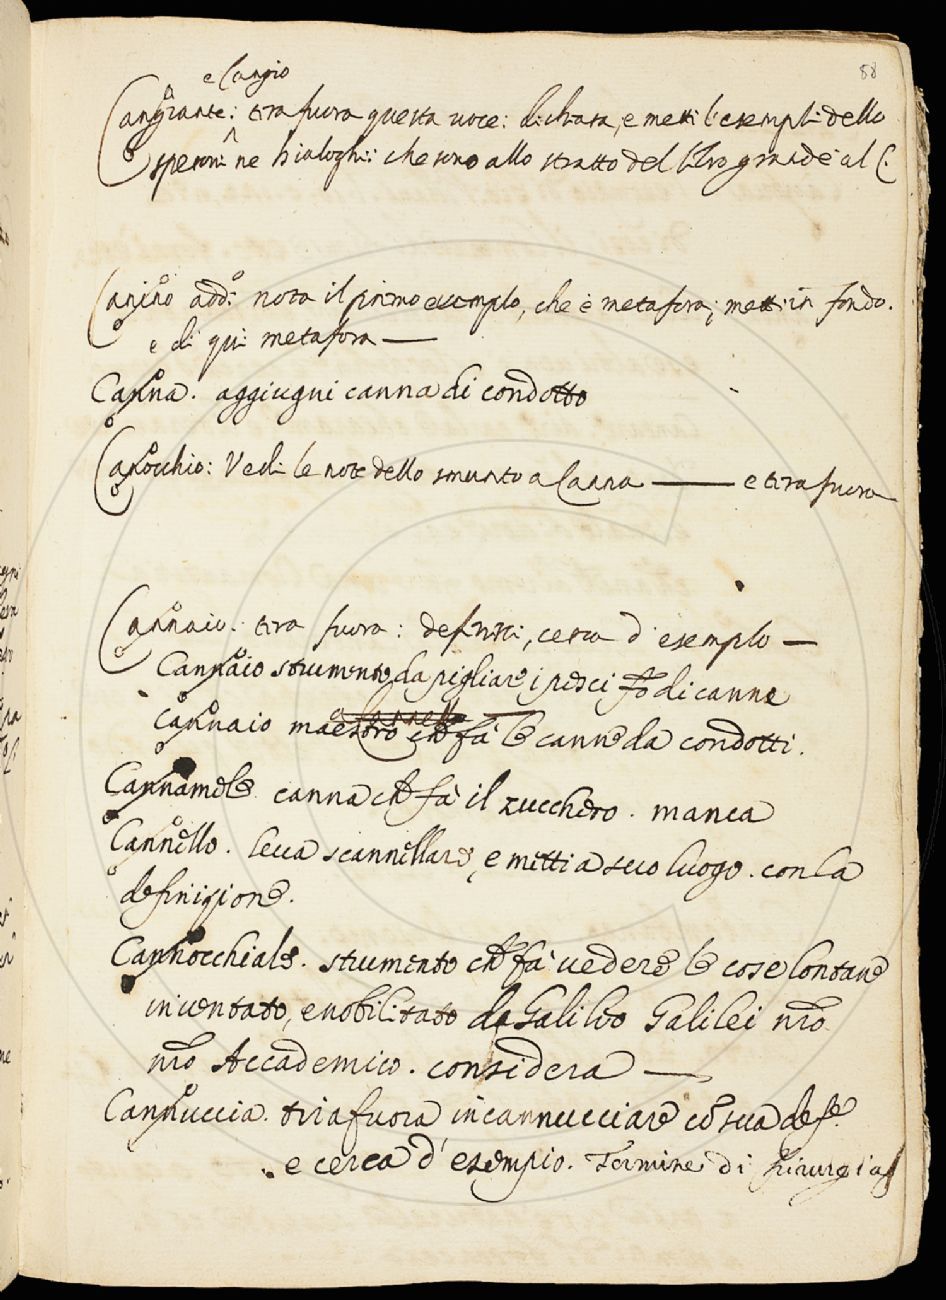 88
e Cangio
Cangiante: tira fuora questa voce: dichiara, e metti l'esempli dello
speroni ne Dialoghi: che sono allo stratto del libro grande al C.
Canino add: nota il primo esemplo, che è metafora; metti in fondo.
e di qui metafora —
Canna. aggiugni canna di condotto
Canocchio: Vedi le note dello smunto a Canna — e tira fuora
Cannaio. tira fuora: definisci, cerca d'esemplo —
Cannaio strumento da pigliare i pesci fto di canne
cannaio maestro che fà le canne da condotti.
Cannamele canna che fà il zucchero. manca
Cannello. leva scannellare, e metti a suo luogo. con la
definizione.
Cannocchiale. strumento che fà vedere le cose lontane
inventato, e nobilitato da Galileo Galilei nro
nro Accademico. considera —
Cannuccia. tira fuora incannucciare co sua def.e
e cerca d'esempio. Termine di Chirurgia